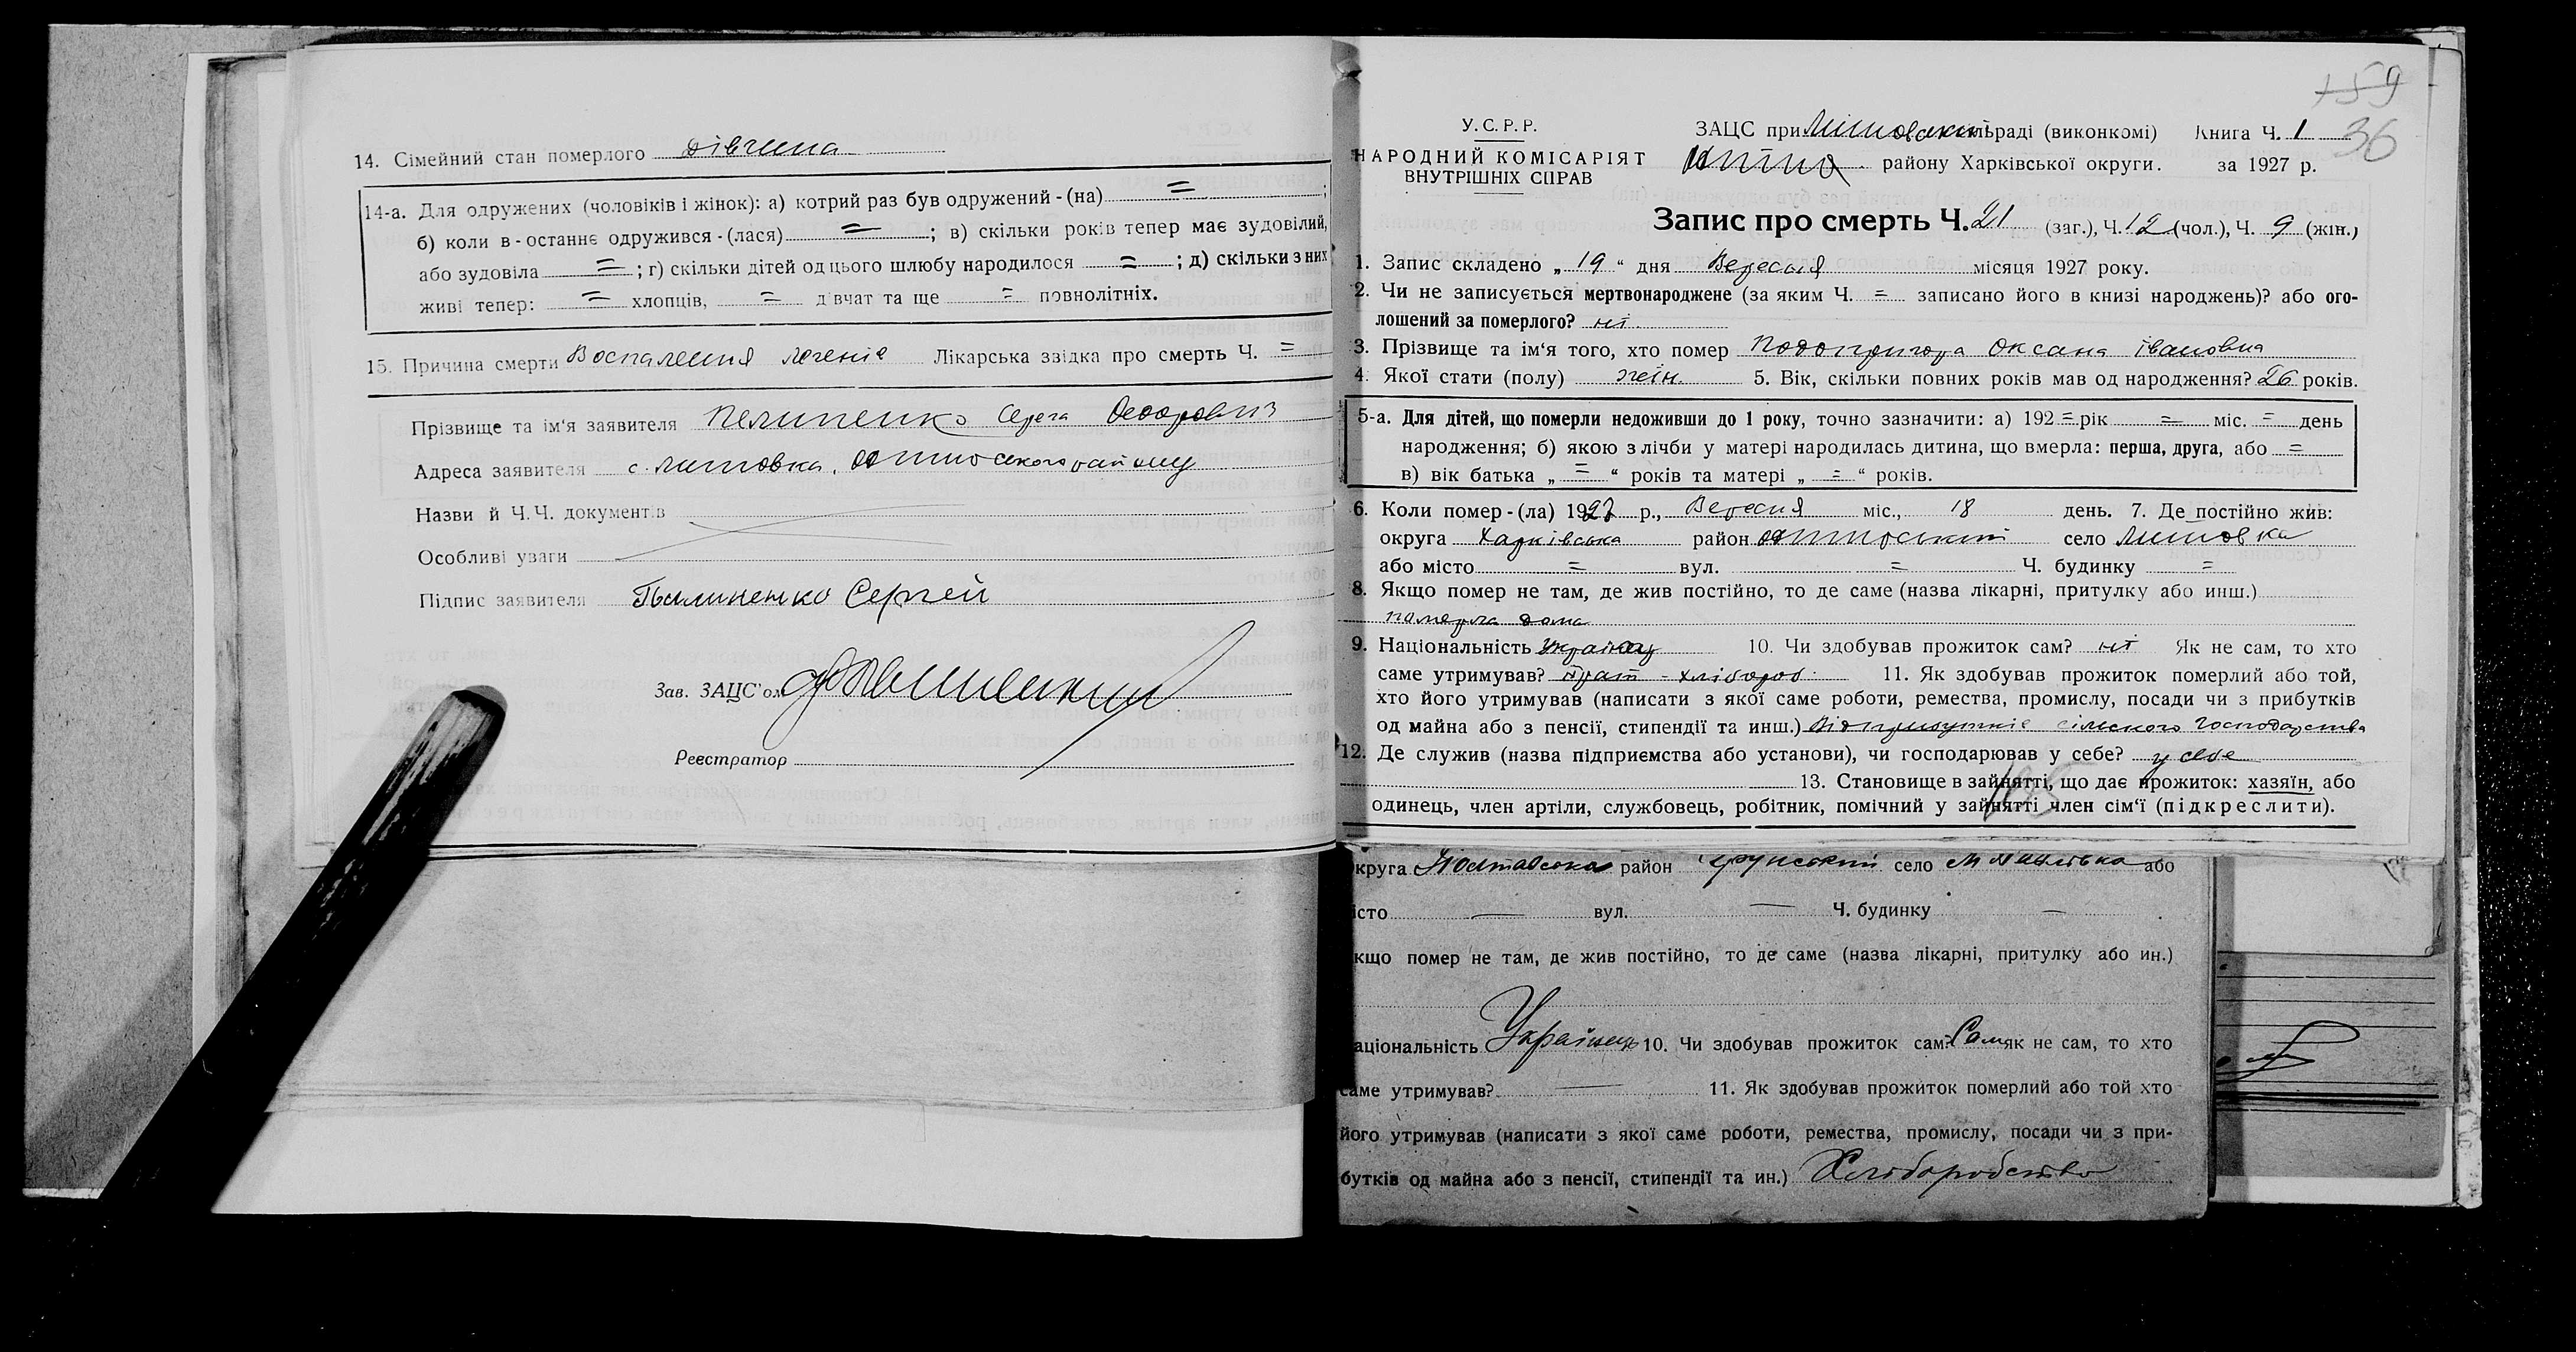 14. Сімейний стан померлого дівчина
14-а. Для одружених (чоловіків і жінок): а) котрий раз був одружений - (на) = ;
б) коли в - останнє одружився - (лася) = ; в) скільки років тепер має зудовілий,
або зудовіла = ; г) скільки дітей од цього шлюбу народилося = ; д) скільки з них
живі тепер: = хлопців, = дівчат та ще = повнолітніх.
15. Причина смерти Воспаления легеніе Лікарська звідка про смерть Ч. =
Прізвище та ім'я заявителя Пелипенко Серга Федорович
Адреса заявителя с. Литовка,
Назви й Ч.Ч. документів
Особливі уваги
Підпис заявителя Сергей
Зав. ЗАЦС'ом
Реєстратор
159
36
У.С.Р.Р.
НАРОДНИЙ КОМІСАРІЯТ
ВНУТРІШНІХ СПРАВ
ЗАЦС при раді (виконкомі) Книга Ч. 1
району Харківської округи. за 1927 р.
Запис про смерть Ч. 21 (заг.), Ч. 12 (чол.), Ч. 9 (жін.)
1. Запис складено „ 19 “ дня Вересня місяця 1927 року.
2. Чи не записується мертвонароджене (за яким Ч. = записано його в книзі народжень)? або ого-
лошений за померлого? ні
3. Прізвище та ім'я того, хто помер Подопригора Оксана Івановна
4. Якої стати (полу) жін. 5. Вік, скільки повних років мав од народження? 26 років.
5-а. Для дітей, що померли недоживши до 1 року, точно зазначити: а) 192 = рік = міс. = день
народження; б) якою з лічби у матері народилась дитина, що вмерла: перша, друга, або =
в) вік батька „ = “ років та матері „ = “ років.
6. Коли помер - (ла) 1927 р., Вересня міс., 18 день. 7. Де постійно жив:
округа Харківська район село Литовка
або місто = вул. = Ч. будинку =
8. Якщо помер не там, де жив постійно, то де саме (назва лікарні, притулку або инш.)
померла дома
9. Національність 10. Чи здобував прожиток сам? ні Як не сам, то хто
саме утримував? брат - хлібороб. 11. Як здобував прожиток померлий або той,
хто його утримував (написати з якої саме роботи, ремества, промислу, посади чи з прибутків
од майна або з пенсії, стипендії та инш.) Від прибутків сільского господарства
12. Де служив (назва підприємства або установи), чи господарював у себе? у себе
13. Становище в зайнятті, що дає прожиток: хазяїн, або
одинець, член артіли, службовець, робітник, помічний у зайнятті член сім'ї (підкреслити).
круга Полтавська район село або
істо — вул. — Ч. будинку —
кщо помер не там, де жив постійно, то де саме (назва лікарні, притулку або ин.)
аціональність Українець 10. Чи здобував прожиток сам? Сам як не сам, то хто
саме утримував? — 11. Як здобував прожиток померлий або той хто
його утримував (написати з якої саме роботи, ремества, промислу, посади чи з при-
бутків од майна або з пенсії, стипендії та ин.) Хліборобство